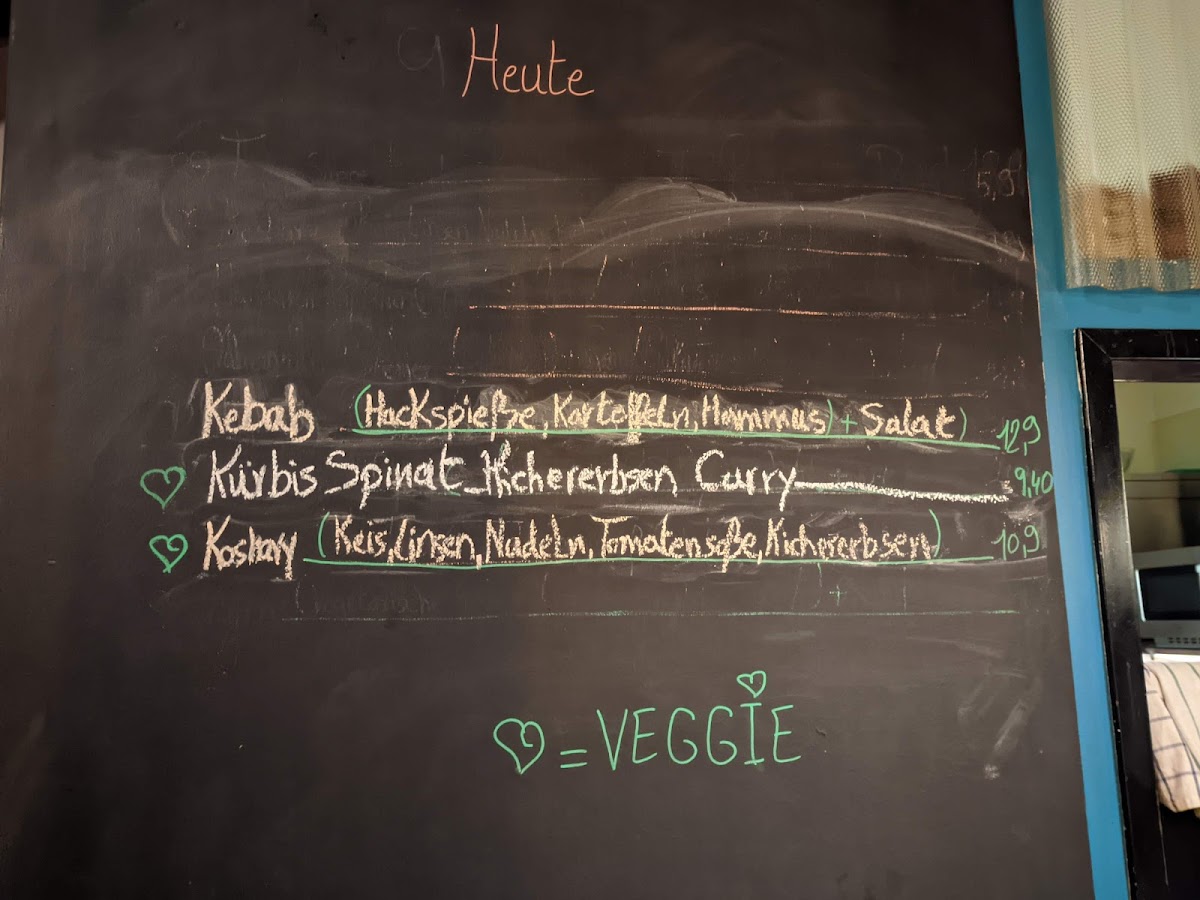 Heute
Kebab (Hackspieße, Kartoffeln, Hommus) + Salat) 12,9
Kürbis Spinat Kichererbsen Curry 9,40
Koshay (Reis, Linsen, Nudeln, Tomatensoße, Kichererbsen) 10,9
= VEGGIE